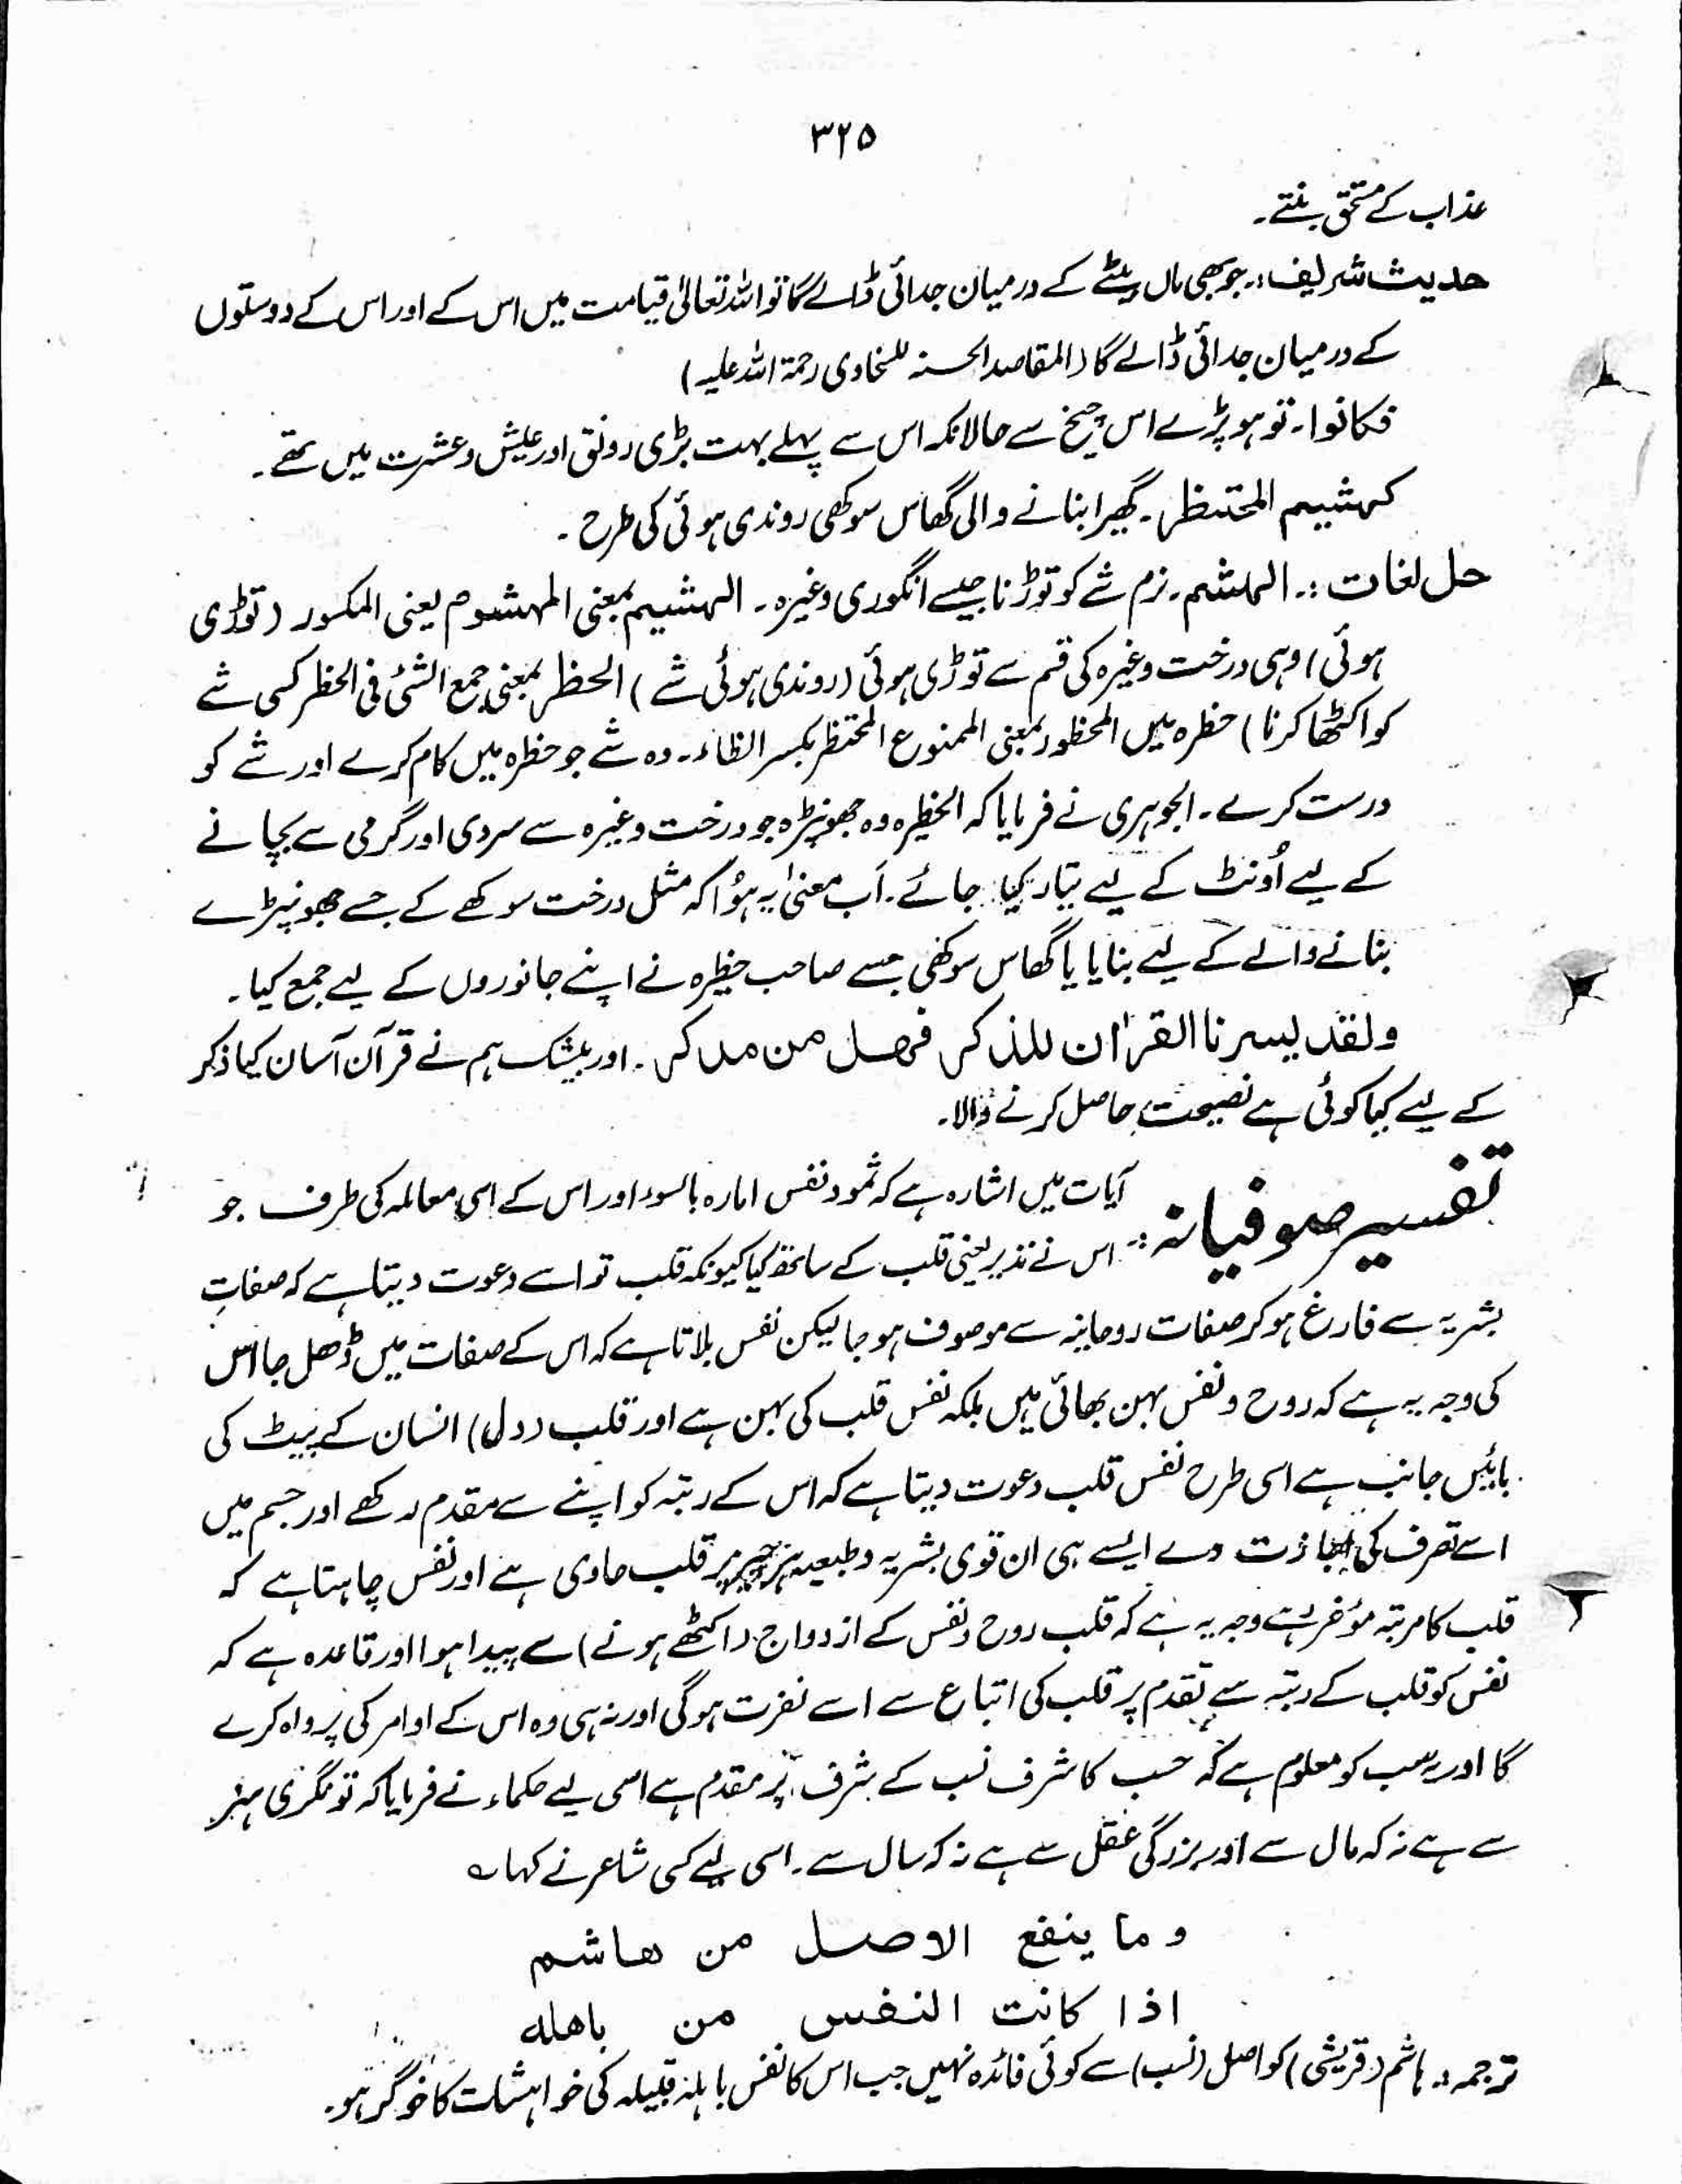 ۳۲۵
عذاب کے مستحق بنتے۔
حدیث شریف:۔ جو بھی ماں بیٹے کے درمیان جدائی ڈالے گا تو اللہ تعالیٰ قیامت میں اس کے اور اس کے دوستوں
کے درمیان جدائی ڈالے گا (المقاصد الحسنہ للسخاوی رحمۃ اللہ علیہ)
فکانوا۔ تو ہو پڑے اس چیخ سے حالانکہ اس سے پہلے بہت بڑی رونق اور عیش وعشرت میں تھے۔
کہشیم المحتظر۔ گھیرا بنانے والی گھاس سوکھی روندی ہوئی کی طرح۔
حل لغات :۔ الہشم۔ نرم شے کو توڑنا جیسے انگوری وغیرہ۔ الہشیم بمعنی المہشوم یعنی المکسور (توڑی
ہوئی) وہی درخت وغیرہ کی قسم سے توڑی ہوئی (روندی ہوئی شے) الحظر بمعنی جمع الشئ فی الحظر کسی شے
کو اکٹھا کرنا) حظرہ میں المحظور بمعنی الممنوع المحتظر بکسر الظاء۔ وہ شے جو حظرہ میں کام کرے اور شے کو
درست کرے۔ الجوہری نے فرمایا کہ الحظیرہ وہ جھونپڑہ جو درخت وغیرہ سے سردی اور گرمی سے بچانے
کے لیے اُونٹ کے لیے تیار کیا جائے۔ اَب معنیٰ یہ ہُوا کہ مثل درخت سوکھے کے جسے جھونپڑے
بنانے والے کے لیے بنایا یا گھاس سوکھی جسے صاحب حظیرہ نے اپنے جانوروں کے لیے جمع کیا۔
ولقد یسرنا القرٰان للذکر فھل من مدکر۔ اور بیشک ہم نے قرآن آسان کیا ذکر
کے لیے کیا کوئی ہے نصیحت حاصل کرنے والا۔
تفسیر صوفیانہ :۔ آیات میں اشارہ ہے کہ ثمود نفس امارہ بالسوء اور اس کے اسی معاملہ کی طرف جو
اس نے نذیر یعنی قلب کے ساتھ کیا کیونکہ قلب تو اسے دعوت دیتا ہے کہ صفاتِ
بشریہ سے فارغ ہو کر صفات روحانیہ سے موصوف ہو جا لیکن نفس بلاتا ہے کہ اس کے صفات میں ڈھل جا اس
کی وجہ یہ ہے کہ روح و نفس بہن بھائی ہیں بلکہ نفس قلب کی بہن ہے اور قلب (دل) انسان کے پیٹ کی
بائیں جانب ہے اسی طرح نفس قلب دعوت دیتا ہے کہ اس کے رتبہ کو اپنے سے مقدم رکھے اور جسم میں
اسے تصرف کی اجازت دے ایسے ہی ان قوی بشریہ و طبعیہ پر قلب حاوی ہے اور نفس چاہتا ہے کہ
قلب کا مرتبہ مؤخر رہے وجہ یہ ہے کہ قلب روح و نفس کے ازدواج (اکٹھے ہونے) سے پیدا ہوا اور قاعدہ ہے کہ
نفس کو قلب کے رتبہ سے تقدم پر قلب کی اتباع سے اسے نفرت ہوگی اور نہ ہی وہ اس کے اوامر کی پرواہ کرے
گا اور یہ سب کو معلوم ہے کہ حسب کا شرف نسب کے شرف پر مقدم ہے اسی لیے حکماء نے فرمایا کہ تونگری ہنر
سے ہے نہ کہ مال سے اور بزرگی عقل سے ہے نہ کہ سال سے۔ اسی لیے کسی شاعر نے کہا ؎
وما ینفع الاصل من ھاشم
اذا کانت النفس من باھلہ
ترجمہ:۔ ہاشم (قریشی) کو اصل (نسب) سے کوئی فائدہ نہیں جب اس کا نفس باہلہ قبیلہ کی خواہشات کا خوگر ہو۔